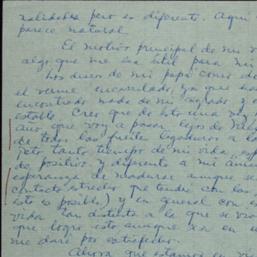 realidades pero es diferente. Aquí
parece natural.
El motivo principal de mi v
algo que me sea útil para mi
Los deseos de mi papá como de
el verme encausulado, ya que ha
encontrado nada de mi agrado y e
estable. Creo que de esto una vez
años que voy a pasar lejos de
de todo, las fruita
jeto tanto tiempo de mi vida, es
de positivo y diferente a mi
esperanza de madurar aunque se
contacto estrecho que tendré con las
esto es posible) y en general con es
vida tan distinta a la que se viv
que logre esto aunque sea en
me daré por satisfecho.
Ahora que estamos en